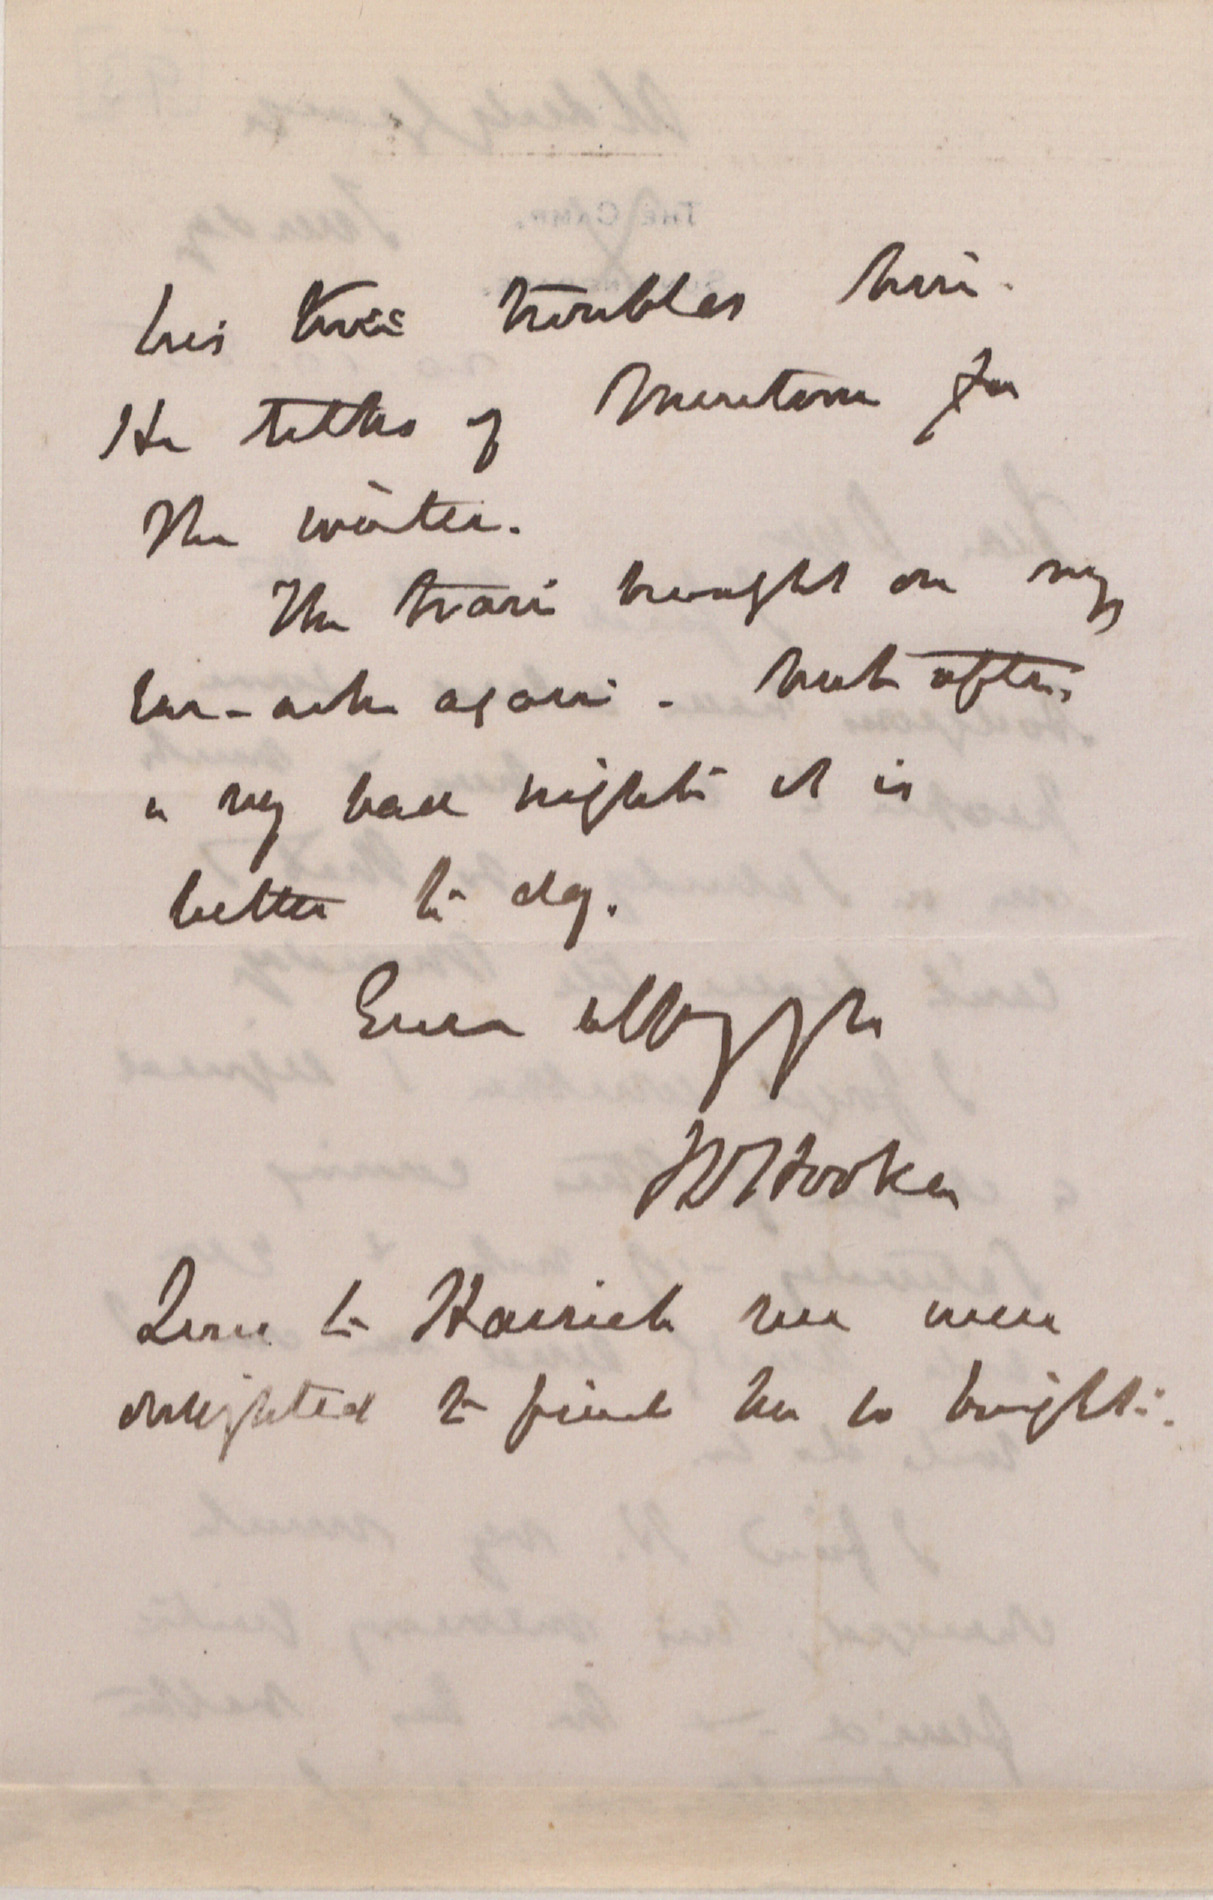 his knee troubles him.
He talks of Mentone for
the winter.
The train brought on my
ear-ache again - but after
a very bad night it is
better to day.
Ever affy
JDHooker
Love to Harriet we were
delighted to find her so bright.